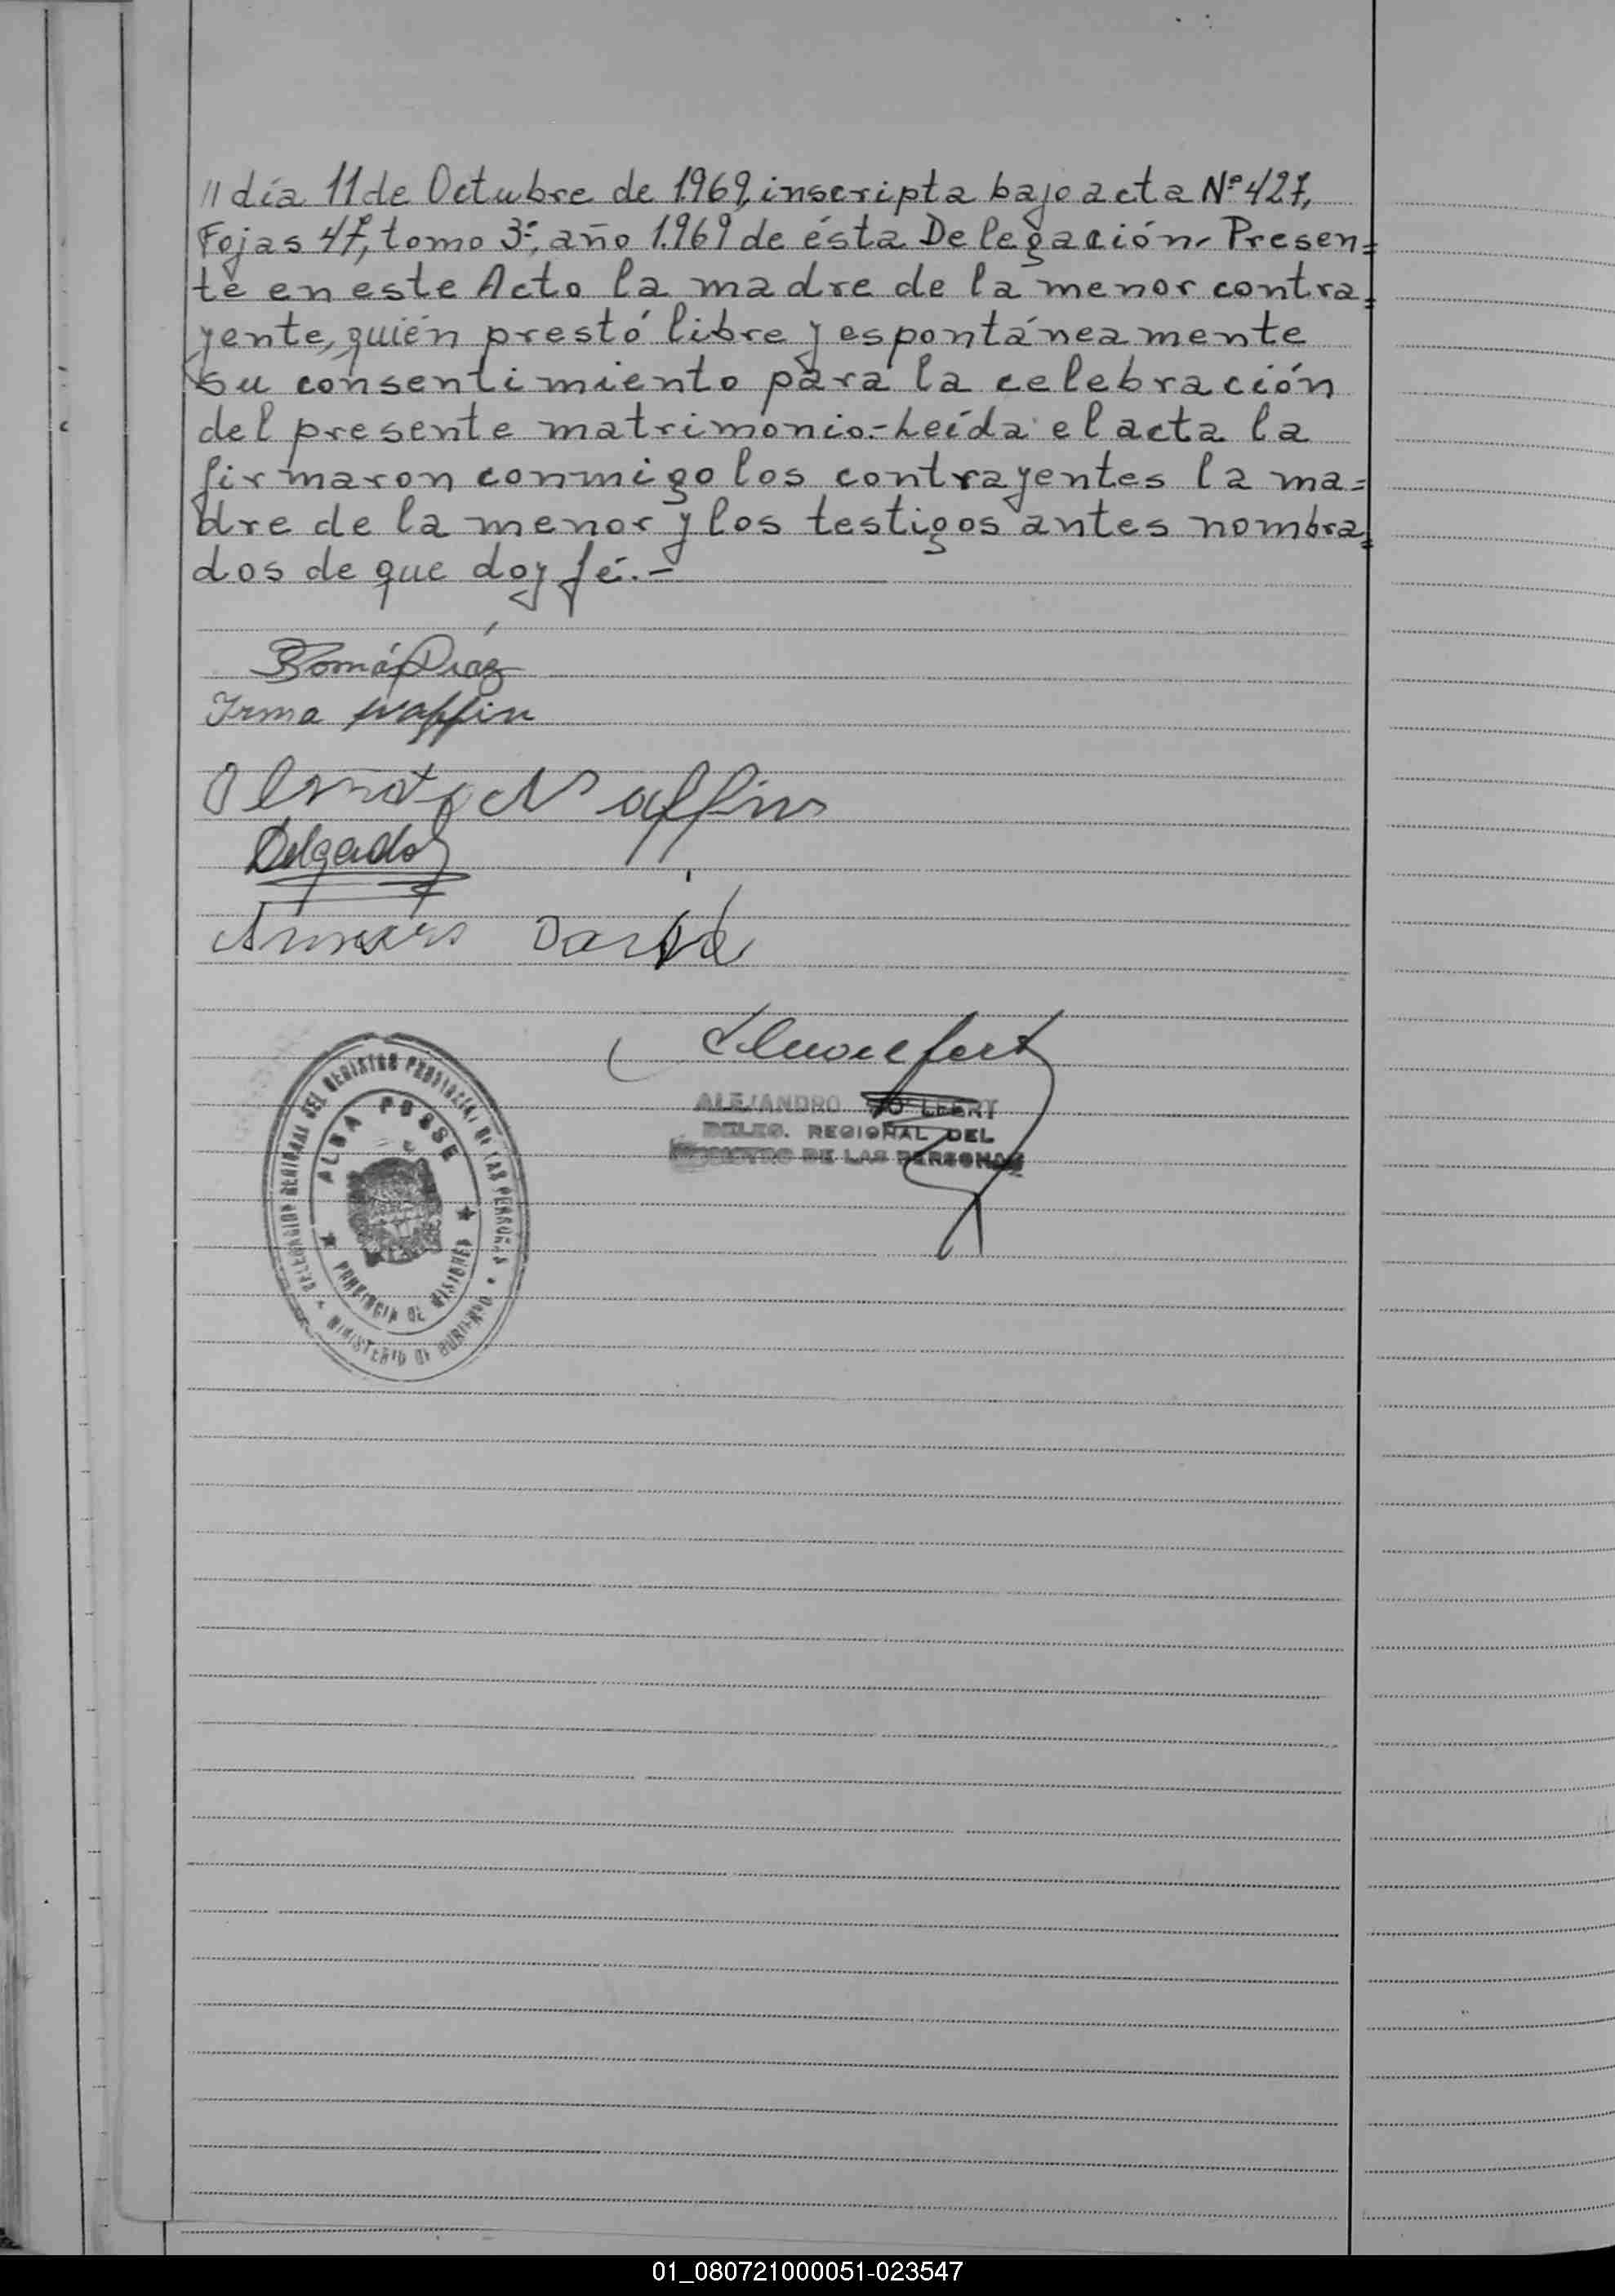 // día 11 de Octubre de 1.969, inscripta bajo acta Nº 427,
Fojas 47, tomo 3º, año 1.969 de ésta Delegación.- Presen=
te en este Acto la madre de la menor contra=
yente, quién prestó libre y espontáneamente
su consentimiento para la celebración
del presente matrimonio.- Leída el acta la
firmaron conmigo los contrayentes la ma=
dre de la menor y los testigos antes nombra=
dos de que doy fé.-
Díaz
Irma
Delgado
ALEJANDRO
DELEG. REGIONAL DEL
REGISTRO DE LAS PERSONAS
DELEGACION REGIONAL DEL REGISTRO PROVINCIAL DE LAS PERSONAS
ALBA POSSE
PROVINCIA DE MISIONES
MINISTERIO DE GOBIERNO
01_080721000051-023547